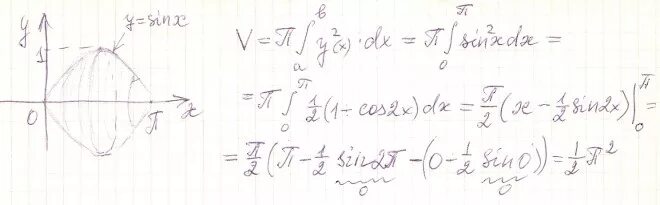 y
y=sinx
1
0
π
x
V = π∫ₐᵇ y²(x)·dx = π∫₀^π sin²xdx =
= π∫₀^π ½(1-cos2x)dx = π/2(x-½sin2x)|₀^π =
= π/2(π-½sin2π-(0-½sin0)) = ½π²
0
0